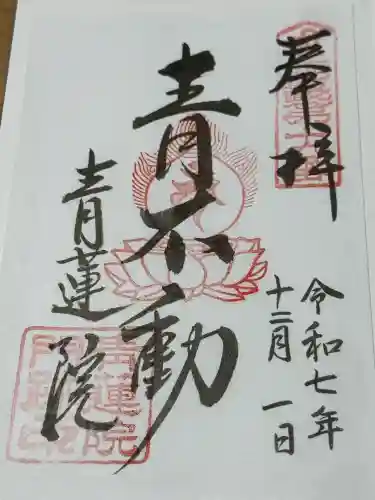 奉拝
令和七年
十二月 一日
青不動
青蓮院